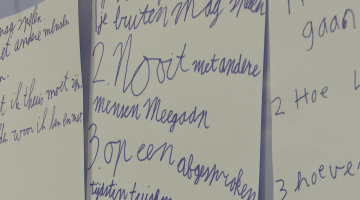 mag spelen
met andere mensen
t ik thuis moet zijn
woon ik ben en met
je buiten mag spelen
2. Nooit met andere
mensen meegaan
3. op een afgesproken
tijdstip thuis
gaan
2 Hoe
3 hoeve